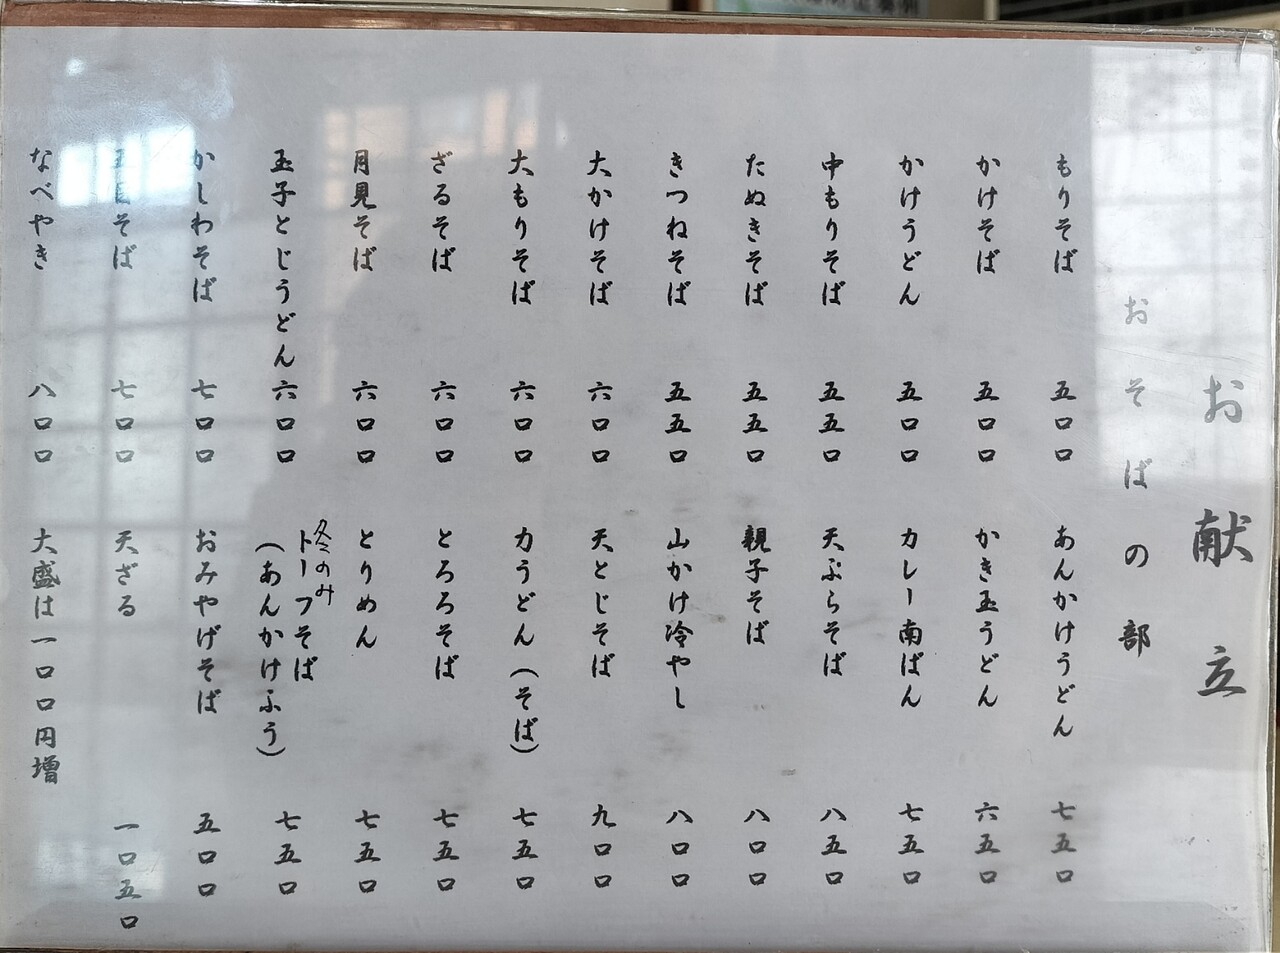 お献立
おそばの部
もりそば 五〇〇
かけそば 五〇〇
かけうどん 五〇〇
中もりそば 五五〇
たぬきそば 五五〇
きつねそば 五五〇
大かけそば 六〇〇
大もりそば 六〇〇
ざるそば 六〇〇
月見そば 六〇〇
玉子とじうどん 六〇〇
かしわそば 七〇〇
五目そば 七〇〇
なべやき 八〇〇
あんかけうどん 七五〇
かき玉うどん 六五〇
カレー南ばん 七五〇
天ぷらそば 八五〇
親子そば 八〇〇
山かけ冷やし 八〇〇
天とじそば 九〇〇
力うどん(そば) 七五〇
とろろそば 七五〇
とりめん 七五〇
冬のみ
トーフそば
(あんかけふう) 七五〇
おみやげそば 五〇〇
天ざる 一〇五〇
大盛は一〇〇円増